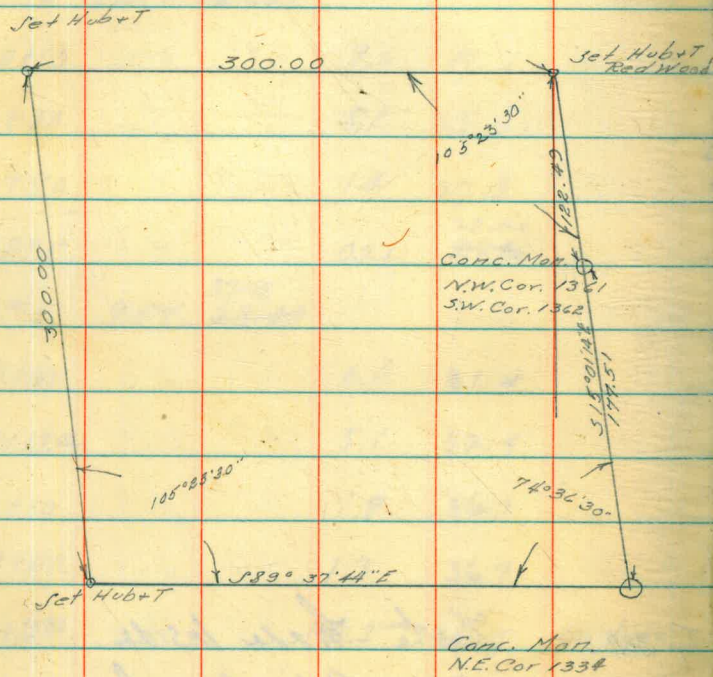 Set Hub+T
300.00
Set Hub+T
Red Wood
105°23'30"
122.49
Conc. Mon.
N.W. Cor. 1361
S.W. Cor. 1362
300.00
S15°01'14"E
177.51
105°23'30"
74°36'30"
S89°37'44"E
Set Hub+T
Conc. Mon.
N.E. Cor 1334